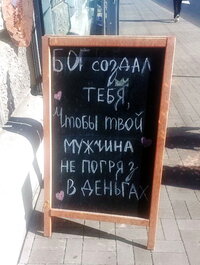 БОГ создал
ТЕБЯ,
Чтобы твой
мужчина
не погряз
в деньгах